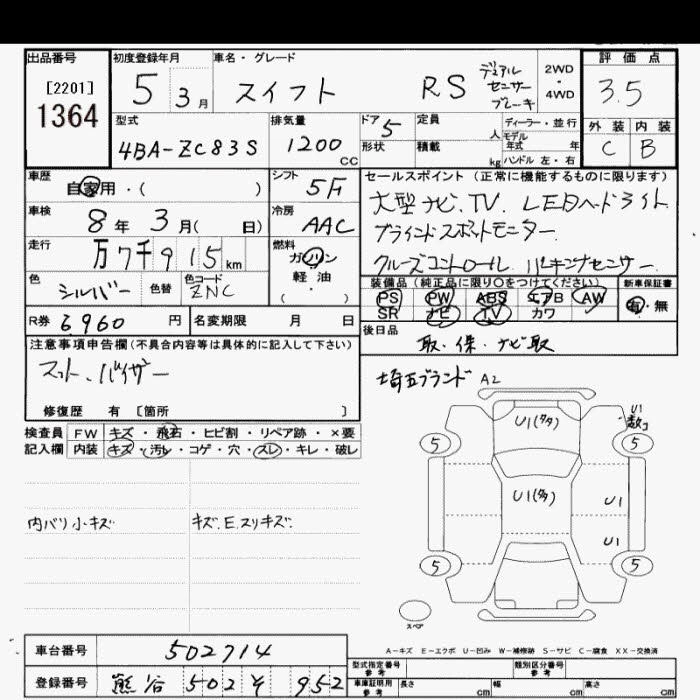 出品番号 初度登録年月 車名・グレード 評価点
[2201]
1364
5 3月 スイフト RS デュアルセンサーブレーキ 2WD・4WD 3.5
型式 排気量 ドア 定員 人 ディーラー・並行 外装 内装
4BA-ZC83S 1200cc 5 形状 積載 kg モデル年式 年 ハンドル 左・右 C B
車歴 自家用・( ) シフト 5F セールスポイント(正常に機能するものに限ります)
車検 8年 3月( 日) 冷房 AAC 大型ナビ、TV、LEDヘッドライト
ブラインドスポットモニター
走行 万7千915km 燃料 ガソリン・軽油・( ) クルーズコントロール パーキングセンサー
色 シルバー 色替 色コード ZNC 装備品(純正品に限り○をつけてください) 新車保証書
PS PW ABS エアB AW 有・無
SR ナビ TV カワ
R券 6,960円 名変期限 月 日 後日品
取・保・ナビ取
注意事項申告欄(不具合内容等は具体的に記入して下さい)
マット、バイザー
埼玉ブランド A2
修復歴 有 [箇所 ]
検査員 FW キズ・飛石・ヒビ割・リペア跡・×要
記入欄 内装 キズ・汚レ・コゲ・穴・スレ・キレ・破レ
内バリ小キズ キズ.E.スリキズ.
U1(多々) U1
5 5
U1(多) U1
U1
5 5
スペア
A-キズ E-エクボ U-凹み W-補修跡 S-サビ C-腐食 XX-交換済
車台番号 502714
登録番号 熊谷 502 952
型式指定番号 参考 類別区分番号 参考
車庫証明用 参考 長さ cm 幅 cm 高さ cm